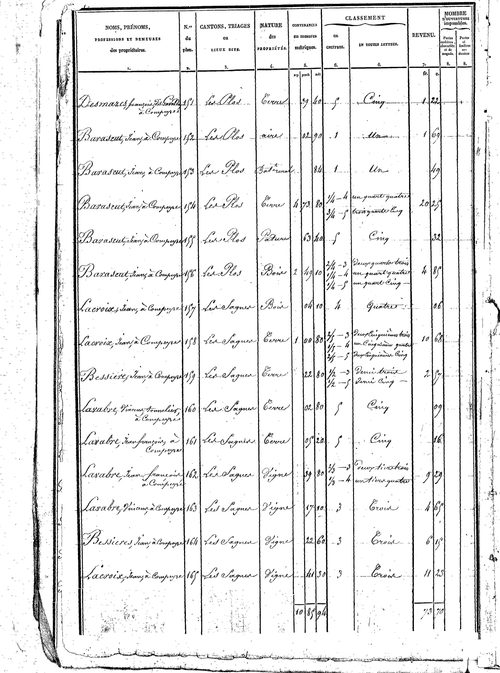 NOMS, PRÉNOMS, PROFESSIONS ET DEMEURES des propriétaires. | N.os du plan. | CANTONS, TRIAGES OU LIEUX DITS. | NATURE des PROPRIÉTÉS. | CONTENANCES en mesures métriques. | CLASSEMENT EN CHIFFRES. | EN TOUTES LETTRES. | REVENU. | NOMBRE D'OUVERTURES imposables.
1. 2. 3. 4. 5. 6. 7. 8. 9.
Desmazes françois à Compeyre 151 Les Plos Terre 29 40 5 Cinq 1 22
Barascut, Jean, à Compeyre 152 Les Plos aire 02 90 1 Un 1 69
Barascut, Jean, à Compeyre 153 Les Plos Bât.t rural 84 1 Un 49
Barascut, Jean, à Compeyre 154 Les Plos Terre 4 73 80 1/4 – 4 un quart quatre 20 25
3/4 – 5 trois quarts Cinq
Barascut, Jean, à Compeyre 155 Les Plos Pâture 63 40 5 Cinq 32
Barascut, Jean, à Compeyre 156 Les Plos Bois 2 49 10 2/4 – 3 Deux quarts trois 4 85
1/4 – 4 un quart quatre
1/4 – 5 un quart Cinq
Lacroix, Jean, à Compeyre 157 Les Sagnes Bois 04 10 4 Quatre 06
Lacroix, Jean, à Compeyre 158 Les Sagnes Terre 1 00 80 2/5 – 3 Deux Cinquièmes trois 10 68
1/5 – 4 un Cinquième quatre
2/5 – 5 deux Cinquièmes Cinq
Bessiere, Jean, à Compeyre 159 Les Sagnes Terre 22 80 1/2 – 3 Demi trois 2 57
1/2 – 5 Demi Cinq
Larabre, Vivian, tonnelier, à Compeyre 160 Les Sagnes Terre 02 80 5 Cinq 09
Larabre, Jean françois, à Compeyre 161 Les Sagnes Terre 05 20 5 Cinq 16
Larabre, Jean francois à Compeyre 162 Les Sagnes Vigne 39 80 2/3 – 3 Deux tiers trois 9 29
1/3 – 4 un tiers quatre
Larabre, Vivian, à Compeyre 163 Les Sagnes Vigne 17 10 3 Trois 4 65
Bessieres, Jean, à Compeyre 164 Les Sagnes Vigne 22 60 3 Trois 6 15
Lacroix, Jean, à Compeyre 165 Les Sagnes Vigne 41 30 3 Trois 11 23
10 85 94 73 70